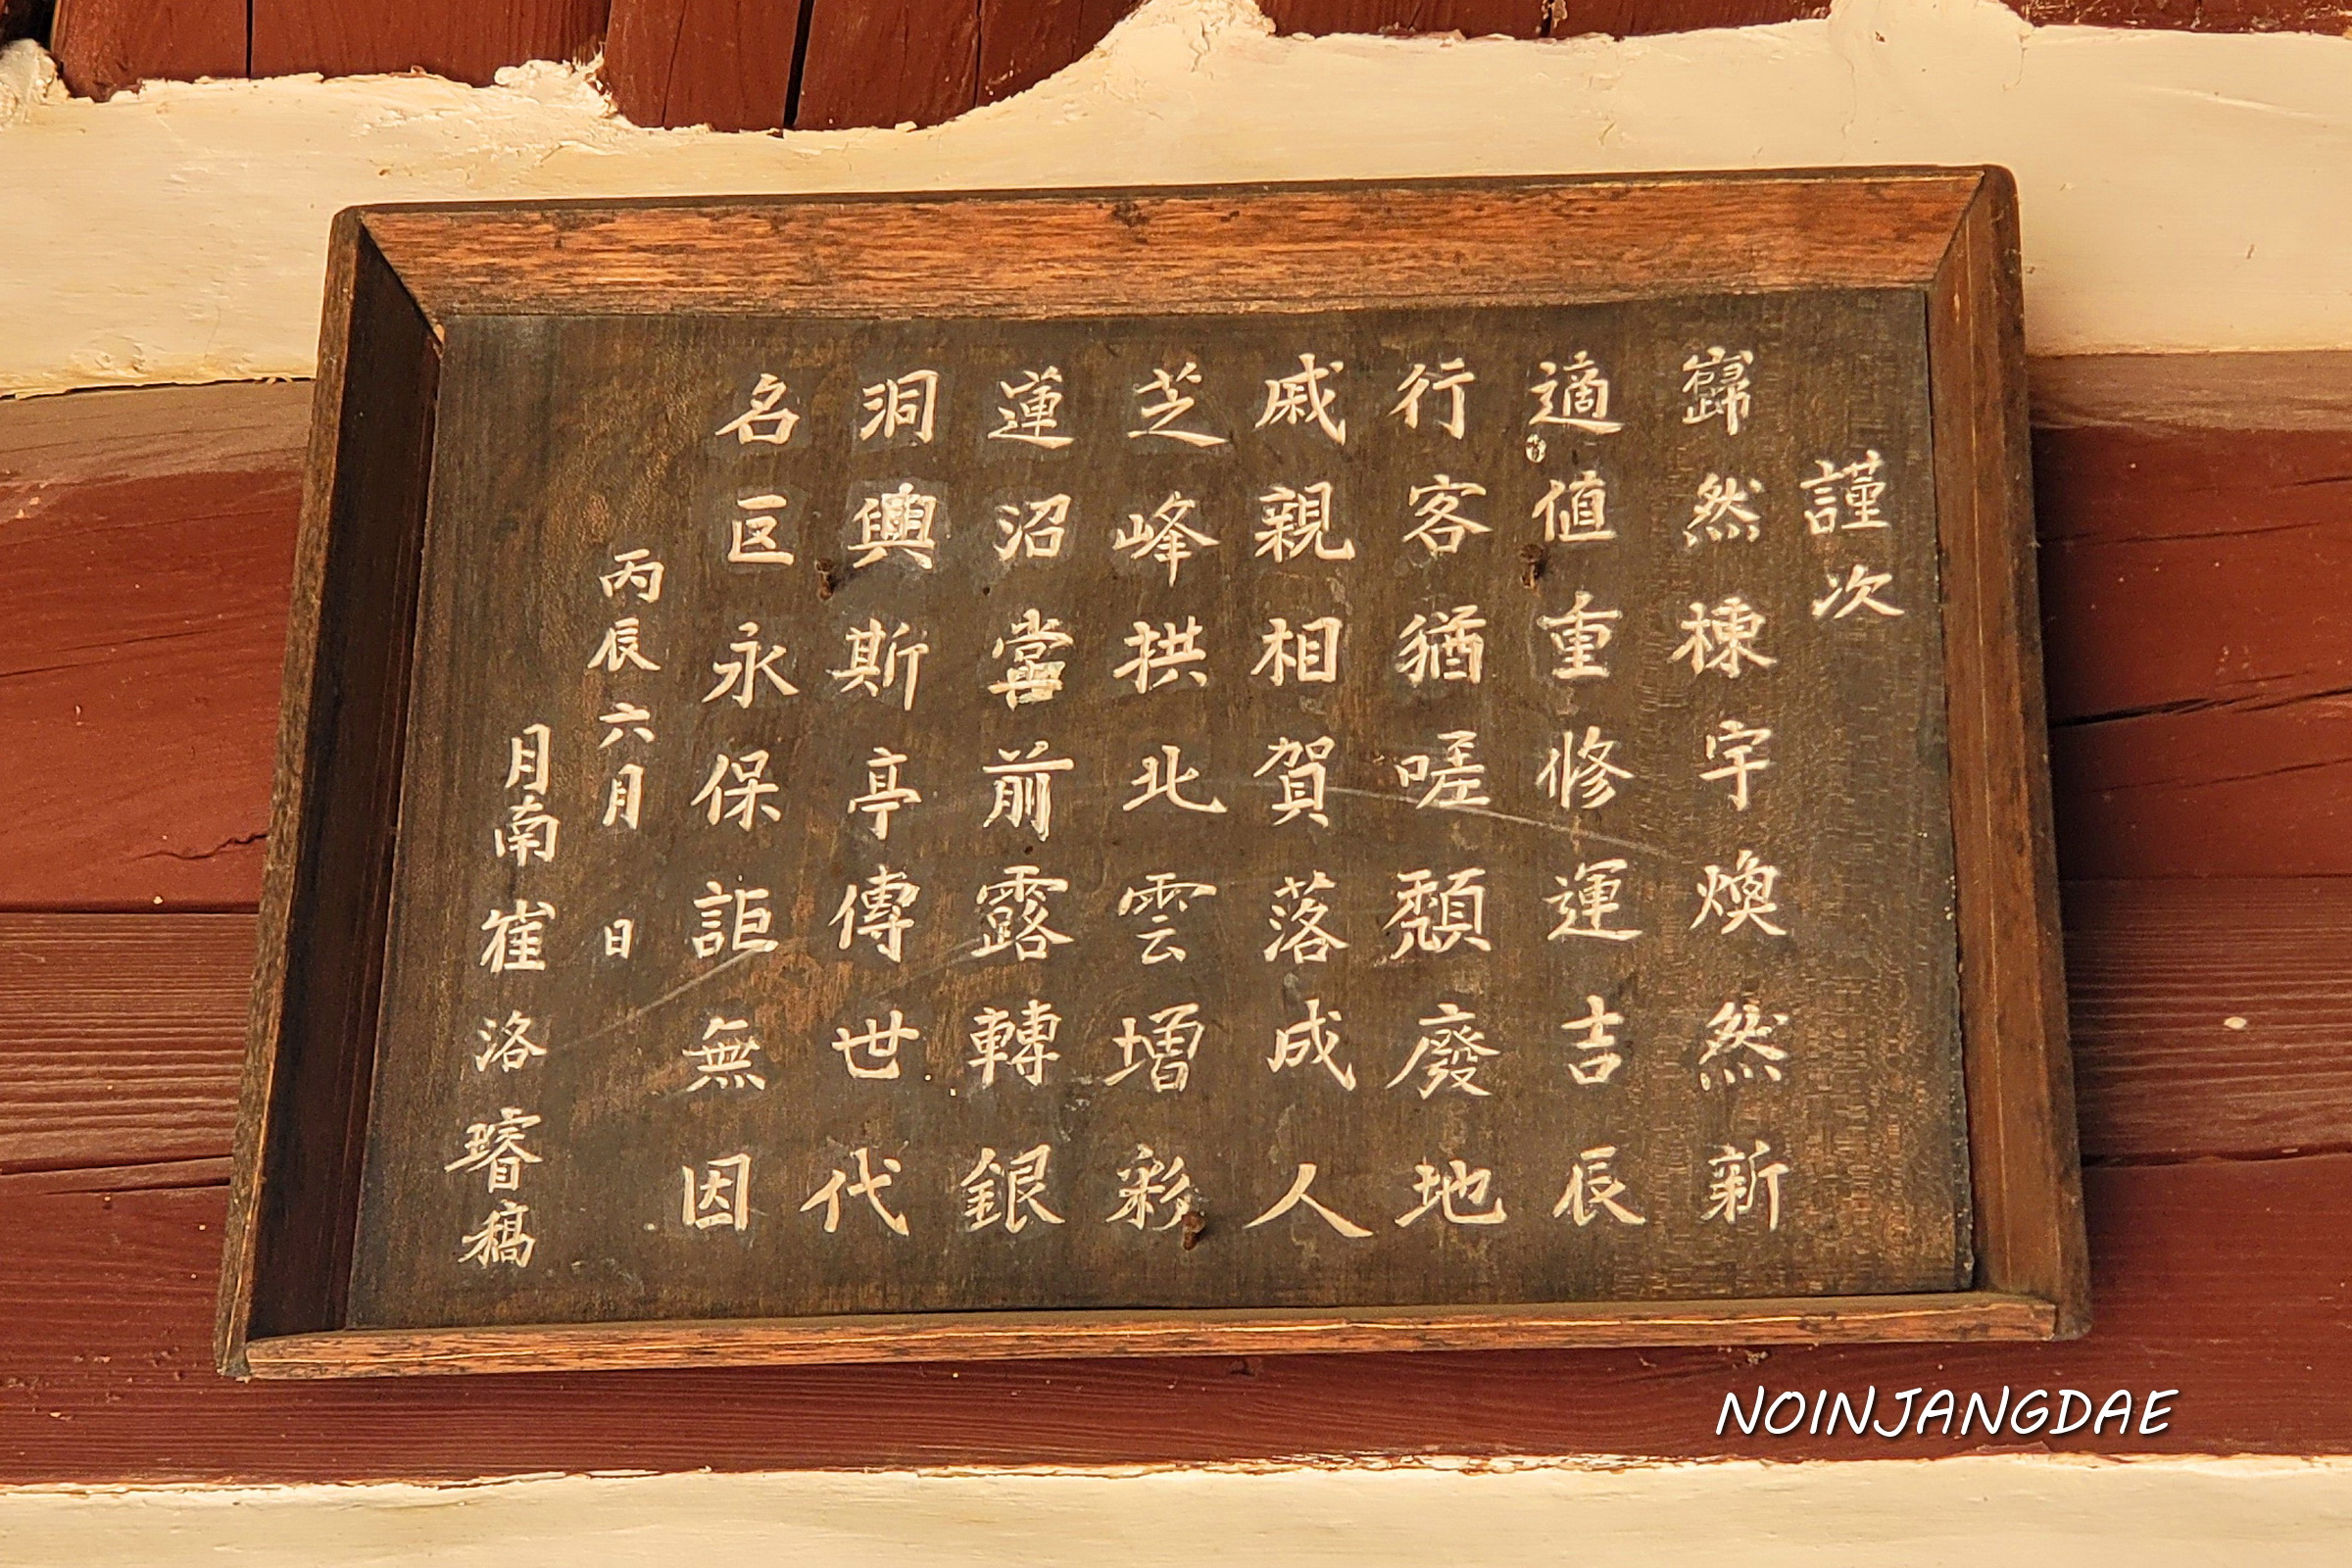 謹次
巋然棟宇煥然新
適値重修運吉辰
行客猶嗟頽廢地
戚親相賀落成人
芝峰拱北雲增彩
蓮沼當前露轉銀
洞與斯亭傳世代
名区永保詎無因
丙辰六月 日
月南崔洛璿稿
NOINJANGDAE